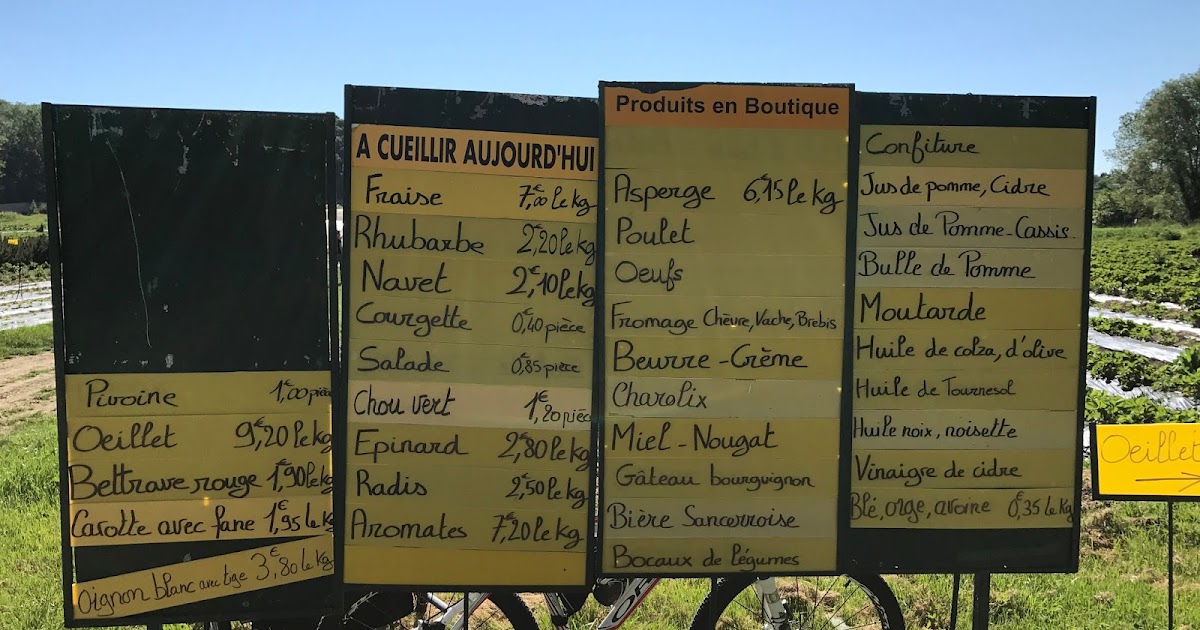 Pivoine 1,€00 pièce
Oeillet 9€,20 le kg
Bettrave rouge 1€,90 le kg
Carotte avec fane 1€,95 le kg
Oignon blanc avec tige 3€,80 le kg
A CUEILLIR AUJOURD'HUI
Fraise 7€,00 le kg
Rhubarbe 2€,20 le kg
Navet 2€,10 le kg
Courgette 0€,40 pièce
Salade 0€,85 pièce
Chou vert 1€,20 pièce
Epinard 2€,80 le kg
Radis 2€,50 le kg
Aromates 7€,20 le kg
Produits en Boutique
Asperge 6€,15 le kg
Poulet
Oeufs
Fromage Chèvre, Vache, Brebis
Beurre - Crème
Charolix
Miel - Nougat
Gâteau bourguignon
Bière Sancerroise
Bocaux de légumes
Confiture
Jus de pomme, Cidre
Jus de Pomme-Cassis
Bulle de Pomme
Moutarde
Huile de colza, d'olive
Huile de Tournesol
Huile noix, noisette
Vinaigre de cidre
Blé, orge, avoine 0€,35 le kg
Oeillet